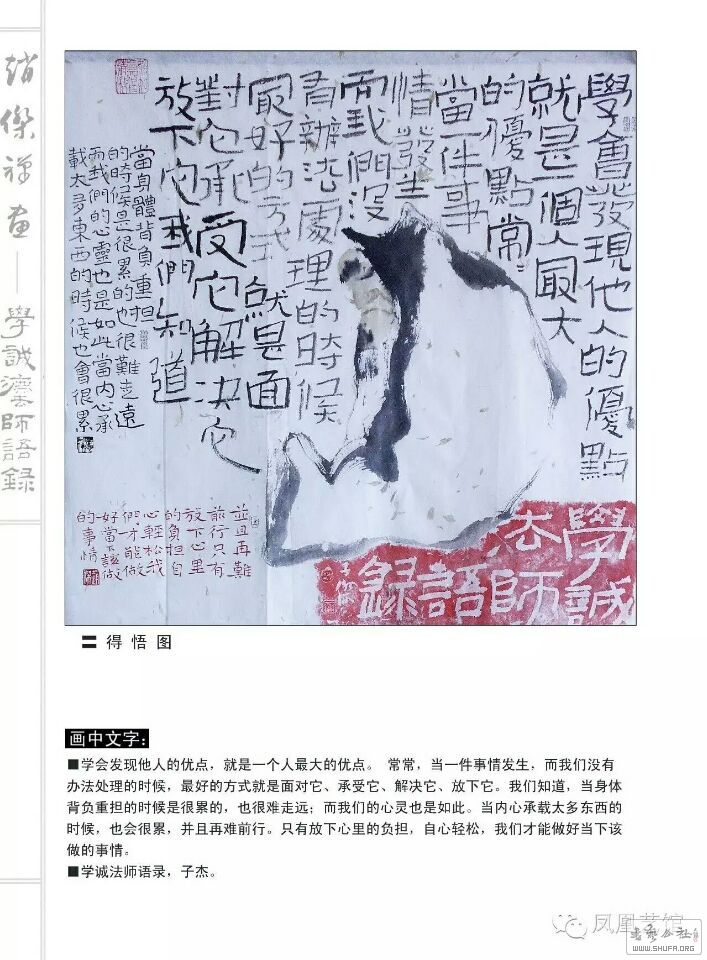 趙傑禅畫——學誠灋師語録
學會發現他人的優點
就是一個人最大
的優點常常
當一件事
情發生
而我們沒
有辦法處理的時候
最好的方式就是面
對它承受它解決它
放下它我們知道
當身體背負重担
的時候是很累的也很難走遠
而我們的心靈也是如此當内心承
載太多東西的時候也會很累
並且再難
前行只有
放下心里
的負担自
心輕松我
們才能做
好當下該做
的事情
學誠
法師
語錄
〓 得 悟 图
画中文字：
■学会发现他人的优点，就是一个人最大的优点。 常常，当一件事情发生，而我们没有
办法处理的时候，最好的方式就是面对它、承受它、解决它、放下它。我们知道，当身体
背负重担的时候是很累的，也很难走远；而我们的心灵也是如此。当内心承载太多东西的
时候，也会很累，并且再难前行。只有放下心里的负担，自心轻松，我们才能做好当下该
做的事情。
■学诚法师语录，子杰。
凤凰艺馆
WWW.SHUFA.ORG